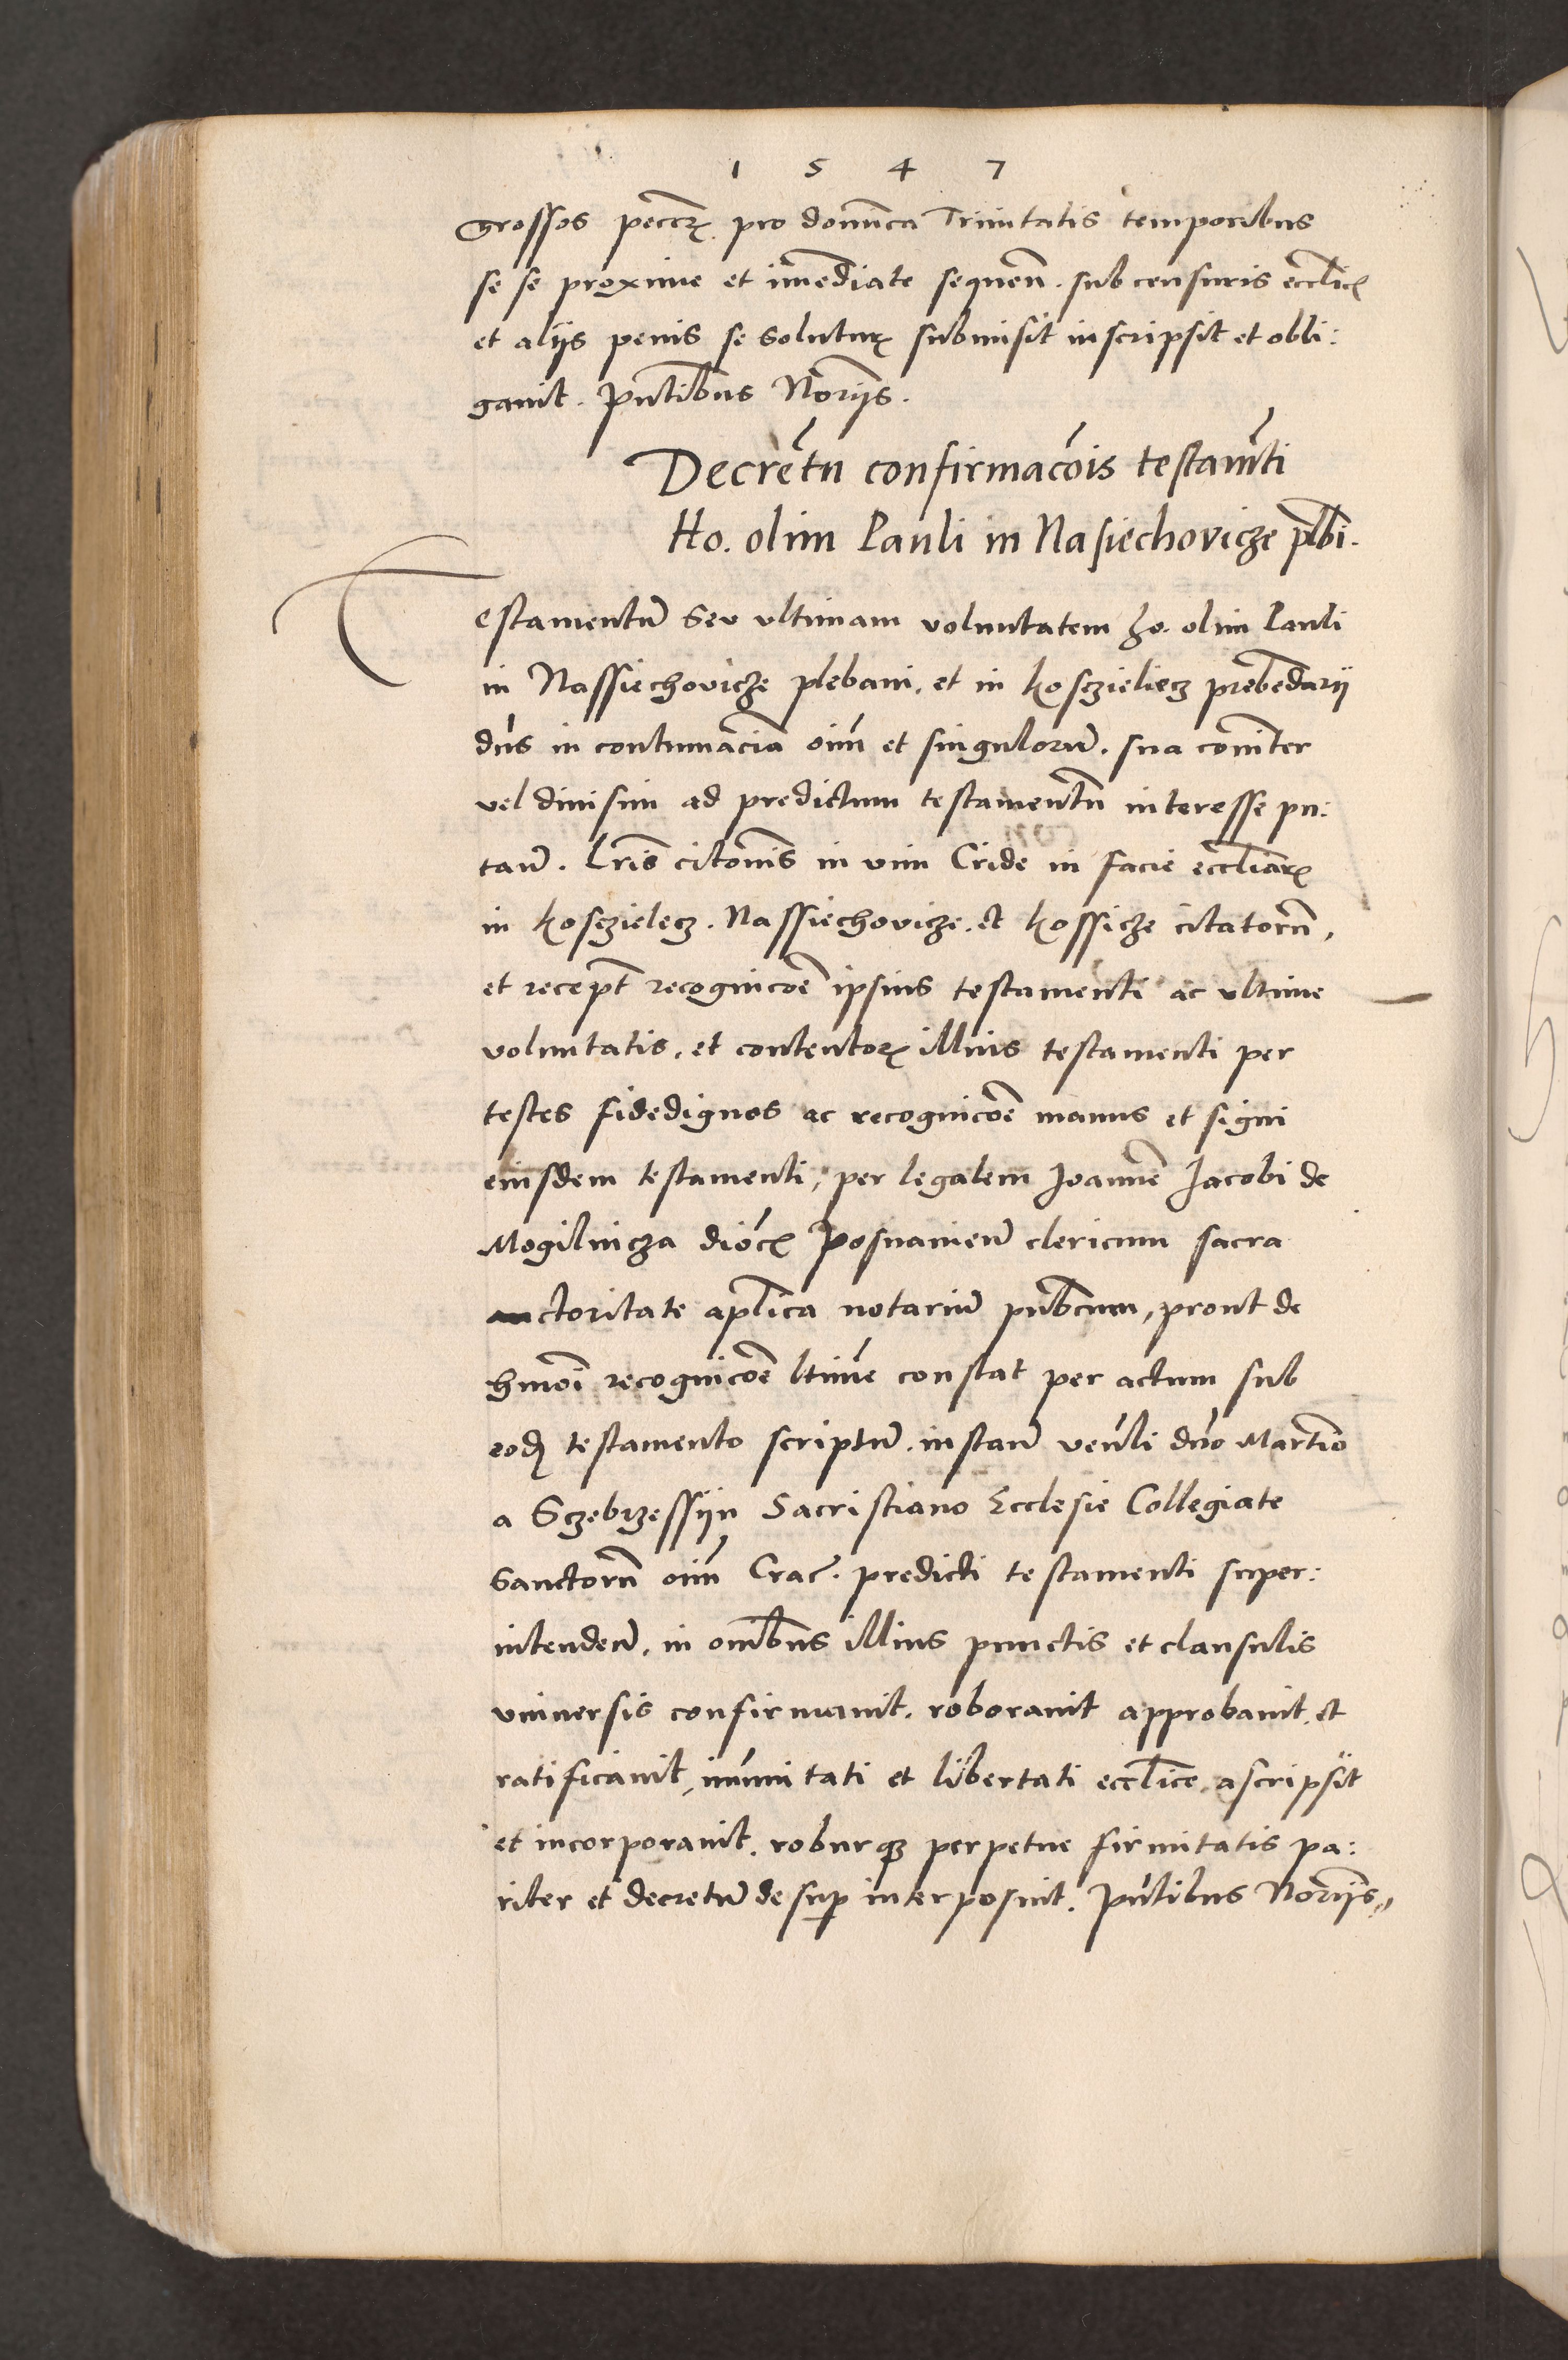 1 5 4 7
grossos peccꝝ. pro domĩca Trinitatis temporibus
se se proxime et im̃ediate sequeñ. sub censuris eccl̃ic̃
et alijs penis se soluturꝝ submisit inscripsit et obli:
gauit. Pñtibus Norijs.
Decretũ confirmac̃ois testam̃ti
Ho. olim Pauli in Nasiechovicze pl̃bi.
Testamentũ Seu vltimam voluntatem ho. olim Pauli
in Nassiechovicze plebani, et in Kosczieliecz prebẽdarij
dñs in contumaciã oim̃ et singulorũ. sua com̃iter
vel diuisim ad predictum testamentũ interesse pu:
tañ. Lr̃is citõnis in vim Cride in facie eccl̃iarꝝ
in Kosczielecz. Nassiechovicze. et Kossicze citatorũ,
et recept̃ recognicõe ipsius testamenti ac vltime
voluntatis, et contentorꝝ illius testamenti per
testes fidedignos ac recognicõe manus et signi
eiusdem testamenti, per legalem Joannẽ Jacobi de
Mogilnicza dioc̃ Posnanieñ clericum sacra
auctoritate apl̃ica notariũ publ̃cum, prout de
hm̃oi recognicõe l̃time constat per actum sub
eod̃ testamento scriptũ. instañ veñli dño Martĩo
a Sczebrzessijn Sacristiano Ecclesie Collegiate
Sanctorũ oim̃ Crac̃. predicti testamenti super:
intendeñ. in om̃ibus illius punctis et clausulis
vniuersis confirmauit. roborauit approbauit. et
ratificauit, im̃unitati et libertati eccl̃ice ascripsit
et incorporauit. roburqꝫ perpetue firmitatis pa:
riter et decretũ desuꝑ interposuit. Pñtibus Norijs.